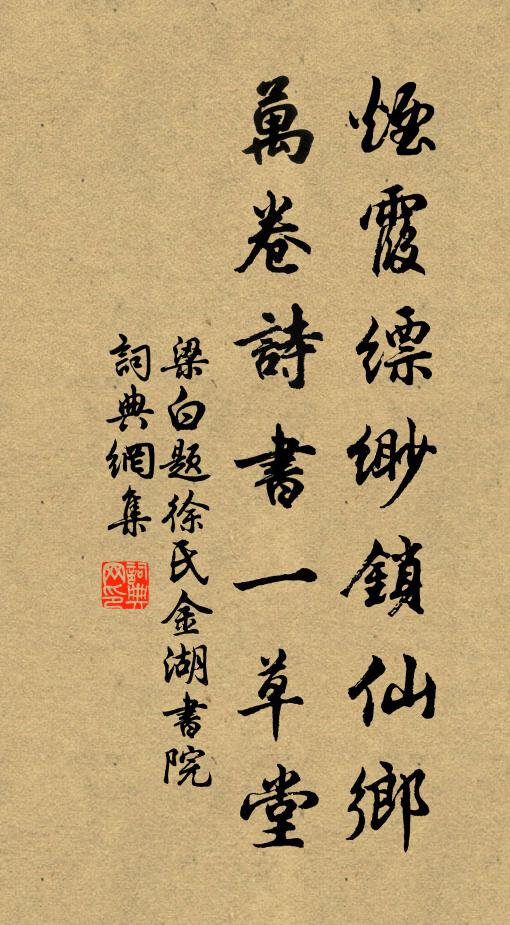 煙霞縹緲鎖仙鄉
萬卷詩書一草堂
梁白題徐氏金湖書院
詞典網集
詞典网印